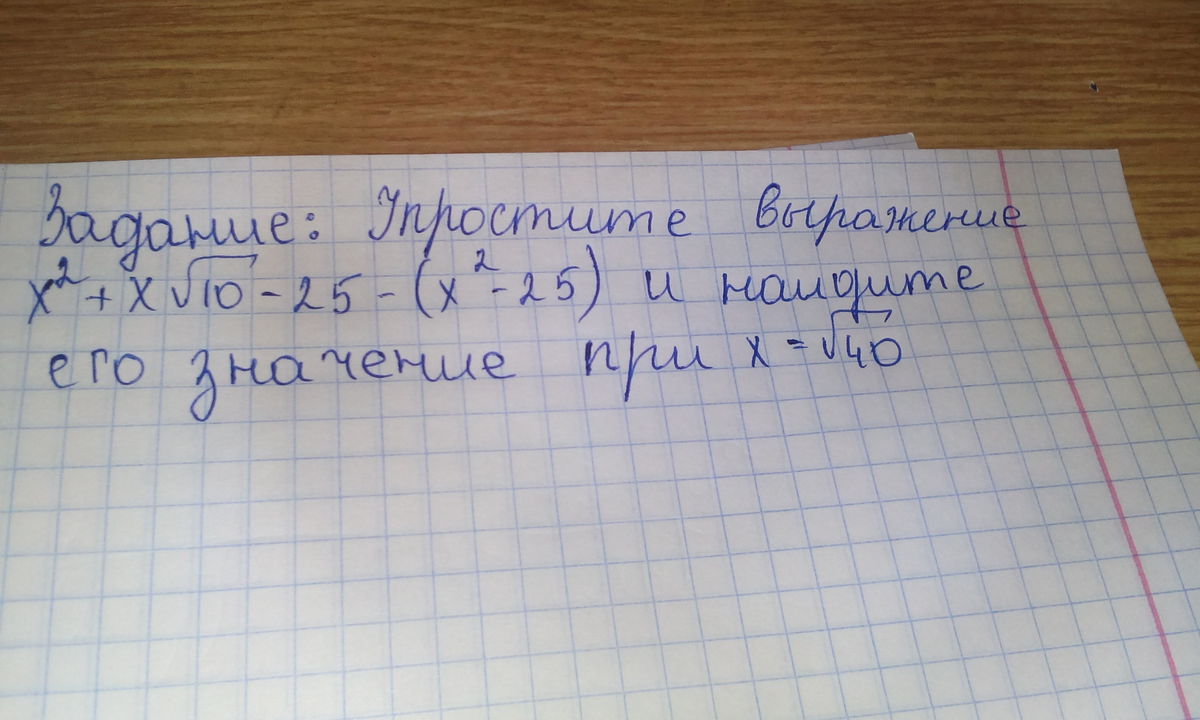 Задание: Упростите выражение
x² + x√10 - 25 - (x² - 25) и найдите
его значение при x = √40